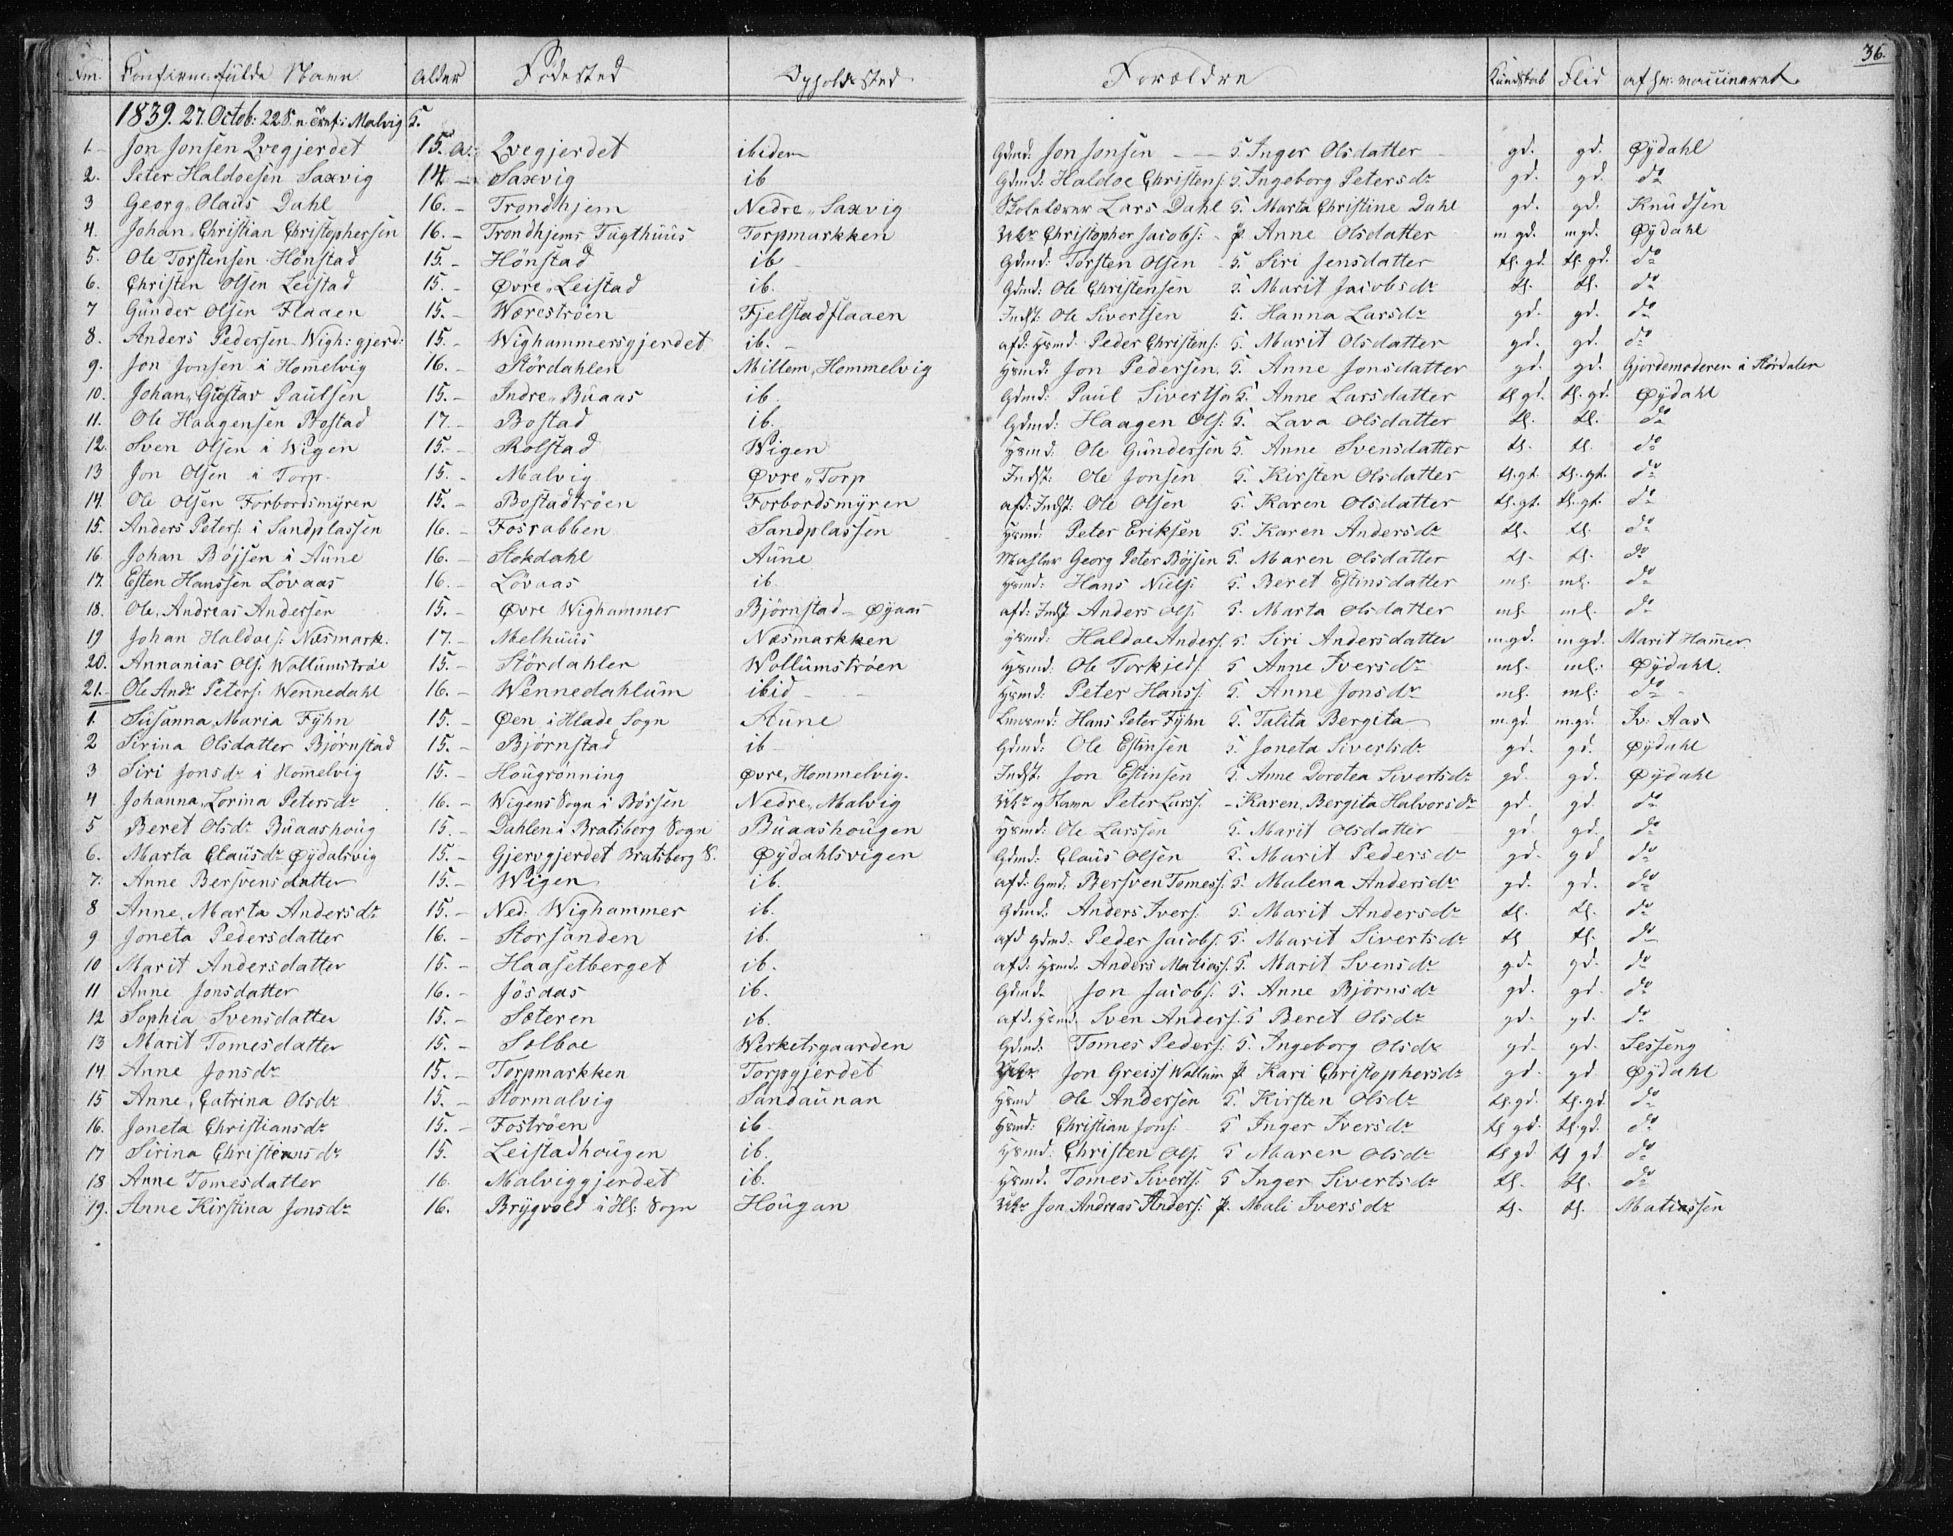 36.
Nm. Confirm: fulde Navn Alder Fødested Opholds Sted Forældre Kundskab Flid af hv. vaccineret
1839. 27. Octob: 22 S. n. Tref: i Malvig
1. Jon Jonsen Qvegjerdet 15. a: Qvegjerdet ibidem Gdmd: Jon Jonsen - - Inger Olsdatter gd. gd. Øydahl
2. Peter Haldoesen Saxvig 14 - Saxvig ib Gdmd: Haldoe Christens: Ingeborg Petersdr gd. gd. do
3 Georg Olaus Dahl 16. - Trondhjem Nedre Saxvig Skolelærer Lars Dahl Marta Christine Dahl gd. gd. Knudsen
4. Johan Christian Christophersen 16. - Trondhjems Tugthuus Torpmarkken Christopher Jacobs: Anne Olsdatter m gd. m gd. Øydahl
5. Ole Torstensen Hønstad 15. - Hönstad ib - Gdmd: Torsten Olsen Siri Jensdatter tl. gd. tl. gd. do
6. Christen Olsen Leistad 15. - Øvre Leistad ib. Gdmd: Ole Christensen Marit Jacobsdr tl. tl. do
7 Gunder Olsen Flaaen 15. - Wærestrøen Fjelstadflaaen Indst: Ole Sivertsen Hanna Larsdr gd. gd. do
8. Anders Pedersen Wigh: gjerd: 15. - Wighammersgjerdet ib. - afd: Hsmd: Peder Christens: Marit Olsdatter gd. gd. do
9. Jon Jonsen i Homelvig 16. - Stördahlen Millem Hommelvig Hsmd: Jon Pedersen Anne Jonsdatter gd. gd. Gjordemoderen i Stördalen
10. Johan Gustav Paulsen 15. - Indre Buaas ib. Gdmd: Paul Sivertsen Anne Larsdatter tl gd. tl. gd. Øydahl
11. Ole Haagensen Bostad 17. - Bostad ib. Gdmd: Haagen Ols: Lava Olsdatter tl. tl. do
12. Sven Olsen i Wigen 15. - Rolstad Wigen Hsmd: Ole Gundersen Anne Svensdatter tl. tl. do
13 Jon Olsen i Torp. 15. - Malvig Øvre Torp Indst: Ole Jonsen Kirsten Olsdatter tl. gt. tl. gt. do
14. Ole Olsen Forbordsmyren 15. - Bostadtrøen Forbordsmyren afd: Indst: Ole Olsen Karen Olsdatter tl. gt. tl. gt. do
15. Anders Peters: i Sandplassen 16. - Fosrabben Sandplassen Hsmd Peter Eriksen Karen Andersdr tl. tl. do
16 Johan Böjsen i Aune 16. - Stokdahl Aune Mahler Georg Peter Böjsen Maren Olsdatter tl. tl. do
17. Esten Hanssen Lövaas 16. - Lövaas ib. Hsmd: Hans Niels: Beret Estinsdatter ml. ml. do
18. Ole Andreas Andersen 15. - Øvre Wighammer Björnstad - Øyaas afd: Indst Anders Ols: Marta Olsdatter ml. ml. do
19 Johan Haldoes: Næsmark. 17. - Melhuus Næsmarkken Hsmd: Haldoe Anders: Siri Andersdatter m. gd. m. gd. Marit Hamer
20. Annanias Ols: Wollumstrøe 15. - Stördahlen Wollumstrøen Hsmd: Ole Torkjels: Anne Iversdr ml. ml. Øydahl.
21. Ole Andr Peters: Wennedahl 16. - Wennedahlum ibid - - Hsmd: Peter Hanss: Anne Jonsdr ml. ml. do
1. Susanna Maria Fyhn 15. - Øen i Hlade Sogn Aune Hans Peter Fyhn Talita Bergita m. gd. m. gd. Iv: Aas
2 Sirina Olsdatter Bjørnstad 15. - Björnstad ib - Gdmd: Ole Estinsen Joneta Sivertsdr gd. gd. Øydahl
3 Siri Jonsdr i Homelvig 15. - Hougrønning Øvre Hommelvig. Indst. Jon Estinsen Anne Dorotea Sivertsdr gd. gd. Øydahl
4 Johanna Lorina Petersdr 16. - Wigens Sogn i Börsen Nedre Malvig Peter Larss: - Karen Bergita Halvorsdr gd. gd. do
5 Beret Olsdr Buaashoug 15. - Dahlen i Bratsberg Sogn Buaashougen Hsmd: Ole Larssen Marit Olsdatter gd. gd. do
6. Marta Clausdr Øydalsvig 15. - Gjervgjerdet Bratsberg S. Øydahlsvigen Gdmd: Claus Olsen Marit Pedersdr gd. gd do
7. Anne Bersvensdatter 15. - Wigen ib. afd: Gmd. Bersven Tomess: Malena Andersdr gd. gd. do
8 Anne Marta Andersdr 15. - Ned: Wighammer ib. Gdmd. Anders Ivers: Marit Andersdr tl. tl. do
9 Joneta Pedersdatter 16. - Storsanden ib. afd Gdmd: Peder Jacobs: Marit Sivertsdr tl tl. do
10 Marit Andersdatter 15. - Haasetberget ib. afd: Hsmd. Anders Matiass: Marit Svensdr gd. gd. do
11 Anne Jonsdatter 16. - Jösaas ib. Gdmd. Jon Jacobs: Anne Björnsdr gd. gd. do
12 Sophia Svensdatter 15. - Sæteren ib. afd. Hsmd. Sven Anders: Beret Olsdr gd. gd. do
13 Marit Tomesdatter 15. - Solboe Werketsgaarden Gdmd: Tomes Peders: Ingeborg Olsdr gd. gd. Sesseng
14 Anne Jonsdr 15. - Torpmarkken Torpgjerdet Jon Greiss Wollum Kari Christophersdr gd. gd Øydahl
15 Anne Catrina Olsdr 15. - Stormalvig Sandaunan Hsmd Ole Andersen Kirsten Olsdr tl. gd. tl. gd do
16. Joneta Christiansdr 15. - Fostrøen ib. Hsmd: Christian Jons: Inger Iversdr tl gd. tl. gd. do
17 Sirina Christensdr 15. Leistadhougen ib. Hsmd: Christen Ols: Maren Olsdr tl gd tl gd do
18 Anne Tomesdatter 16. Malviggjerdet ib. Hsmd. Tomes Siverts: Inger Sivertsdr tl. tl. do
19. Anne Kirstina Jonsdr 16. Brygvold i Hl: Sogn Hougan Jon Andreas Anders: Mali Iversdr tl. tl. Matiassen